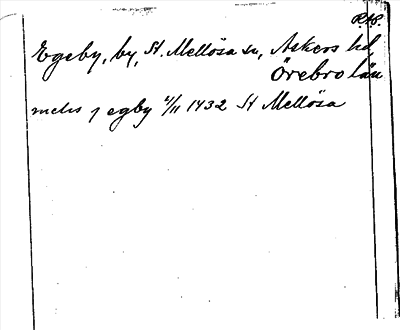 RAP.
Egeby, by, St. Mellösa sn, Askers hd,
Örebro län
melis j egby 4/11 1432 St Mellösa